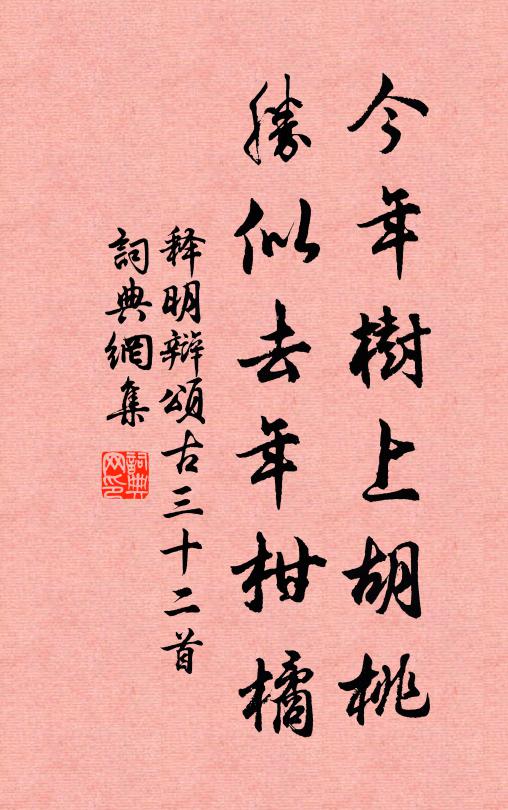 今年樹上胡桃
勝似去年柑橘
释明辯頌古三十二首
詞典網集
詞典网印